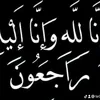 نَّا لِلَّٰهِ وَإِنَّا إِلَيْ
رَاجِعُونَ